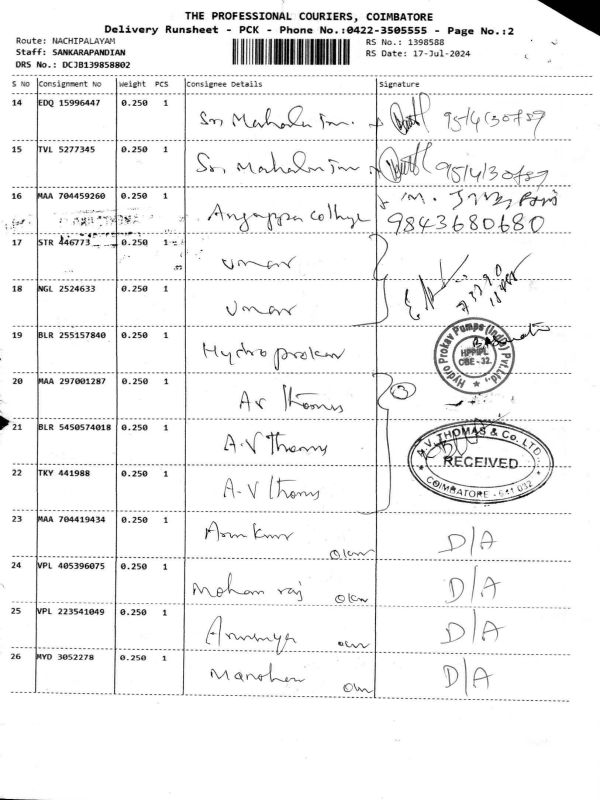 THE PROFESSIONAL COURIERS, COIMBATORE
Delivery Runsheet - PCK - Phone No.:0422-3505555 - Page No.:2
Route: NACHIPALAYAM
RS No.: 1398588
Staff: SANKARAPANDIAN
RS Date: 17-Jul-2024
DRS No.: DCJB139858802
S No Consignment No Weight PCS Consignee Details Signature
14 EDQ 15996447 0.250 1
Sri Mahalaxmi
15 TVL 5277345 0.250 1
Sri Mahalaxmi
16 MAA 704459260 0.250 1
Angappa College 9843680680
17 STR 446773 0.250 1
Umar
18 NGL 2524633 0.250 1
Umar
19 BLR 255157840 0.250 1
Hydro prokav
Hydro Prokav Pumps (India) Pvt.Ltd.,
HPPIPL
CBE - 32.
20 MAA 297001287 0.250 1
A.V Thomas 3
21 BLR 5450574018 0.250 1
A.V Thomas
A.V. THOMAS & Co. LTD.,
RECEIVED
COIMBATORE - 641 032
22 TKY 441988 0.250 1
A.V Thomas
23 MAA 704419434 0.250 1
Arun Kumar D/A
24 VPL 405396075 0.250 1
Mohan raj D/A
25 VPL 223541049 0.250 1
D/A
26 MYD 3052278 0.250 1
Manohar D/A